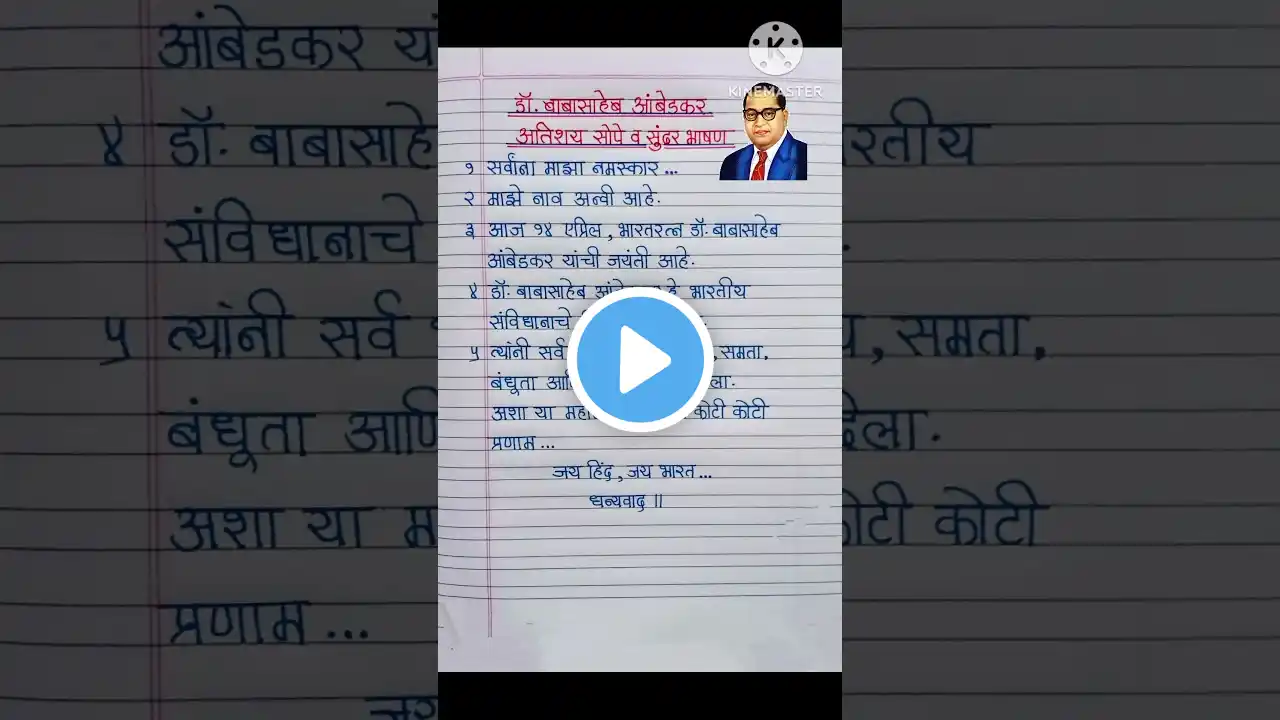 KINEMASTER
डॉ. बाबासाहेब आंबेडकर
अतिशय सोपे व सुंदर भाषण
१ सर्वांना माझा नमस्कार...
२ माझे नाव अन्वी आहे.
३ आज १४ एप्रिल, भारतरत्न डॉ. बाबासाहेब
आंबेडकर यांची जयंती आहे.
४ डॉ. बाबासाहेब हे भारतीय
संविधानाचे
५ त्यांनी सर्व , समता,
बंधूता
अशा या कोटी कोटी
प्रणाम...
जय हिंद, जय भारत...
धन्यवाद ॥